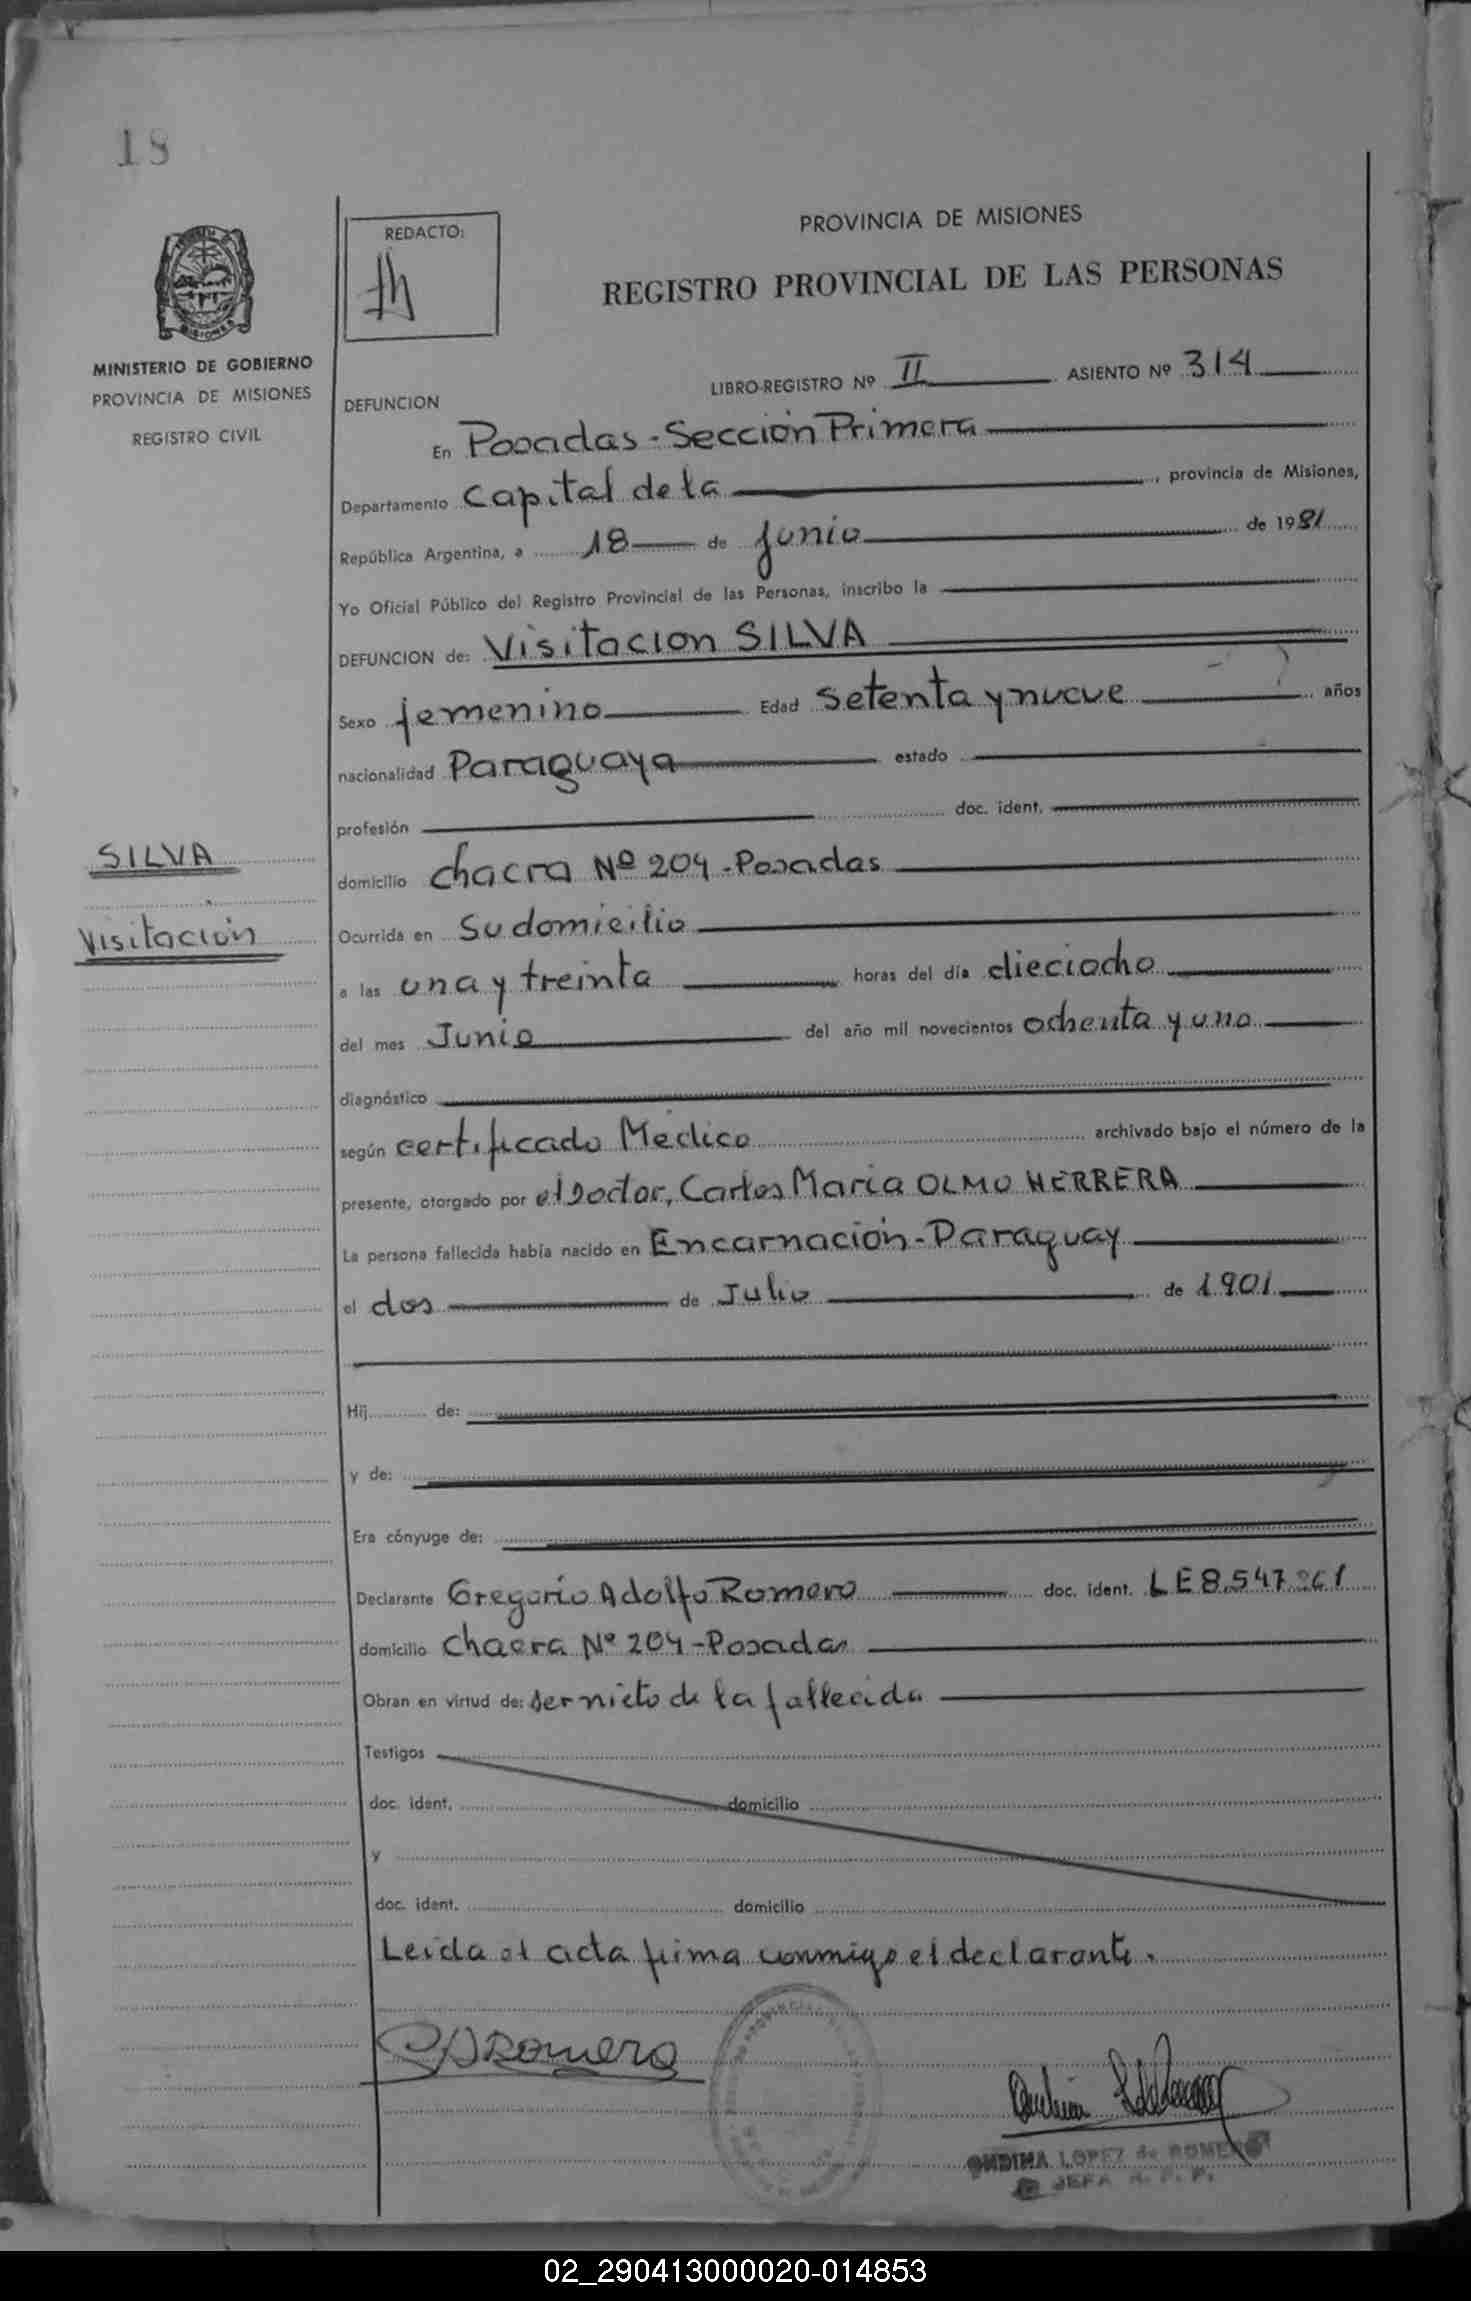 18
REDACTO:
PROVINCIA DE MISIONES
REGISTRO PROVINCIAL DE LAS PERSONAS
MINISTERIO DE GOBIERNO
PROVINCIA DE MISIONES
REGISTRO CIVIL
LIBRO-REGISTRO Nº II ASIENTO Nº 314
DEFUNCION
En Posadas - Sección Primera
Departamento Capital de la, provincia de Misiones,
República Argentina, a 18 de Junio de 1981
Yo Oficial Público del Registro Provincial de las Personas, inscribo la
DEFUNCION de: Visitacion SILVA
Sexo femenino Edad setenta y nueve años
nacionalidad Paraguaya estado
profesión doc. ident.
SILVA
domicilio chacra Nº 204 - Posadas
Visitación
Ocurrida en su domicilio
a las una y treinta horas del día dieciocho
del mes Junio del año mil novecientos ochenta y uno
diagnóstico
según certificado Médico archivado bajo el número de la
presente, otorgado por el Doctor, Carlos María OLMO HERRERA
La persona fallecida había nacido en Encarnación - Paraguay
el dos de Julio de 1901
Hij de:
y de:
Era cónyuge de:
Declarante Gregorio Adolfo Romero doc. ident. LE 8.547.261
domicilio Chacra Nº 204 - Posadas
Obran en virtud de: ser nieto de la fallecida
Testigos
doc. ident. domicilio
y
doc. ident. domicilio
Leída el acta firma conmigo el declarante.
Romero
ONDINA LOPEZ de ROMERO
JEFA R. P. P.
02_290413000020-014853